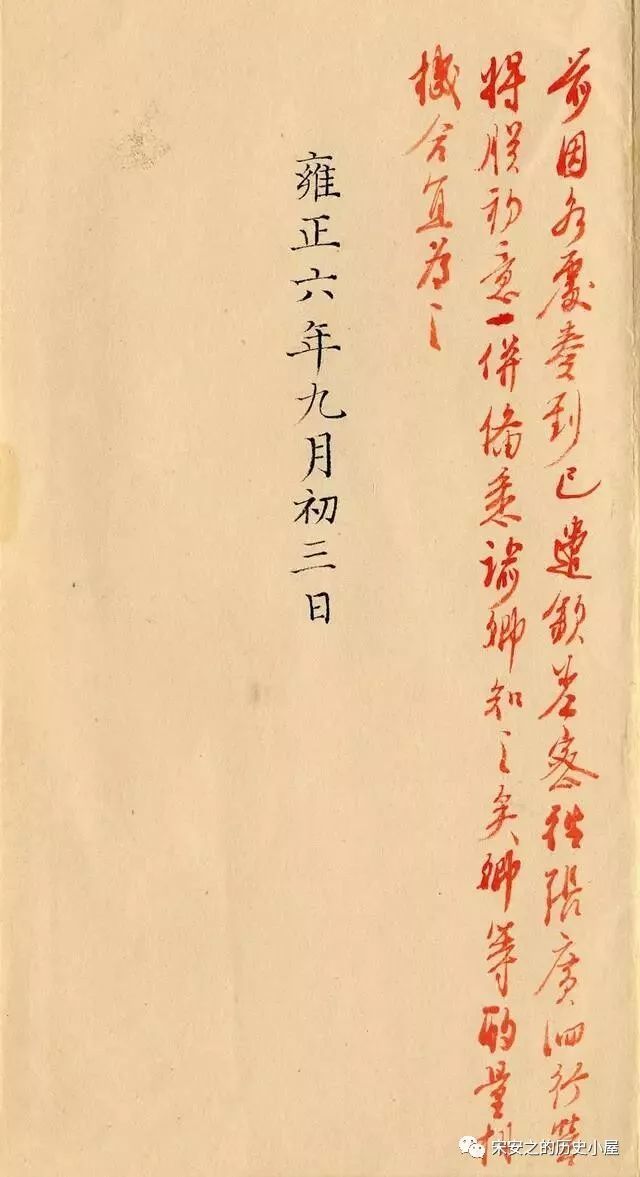 前因各處奏到已遣欽差密往張廣泗行營
將朕初意一併備悉諭卿知之矣卿等酌量相
機合宜為之
雍正六年九月初三日
宋安之的历史小屋